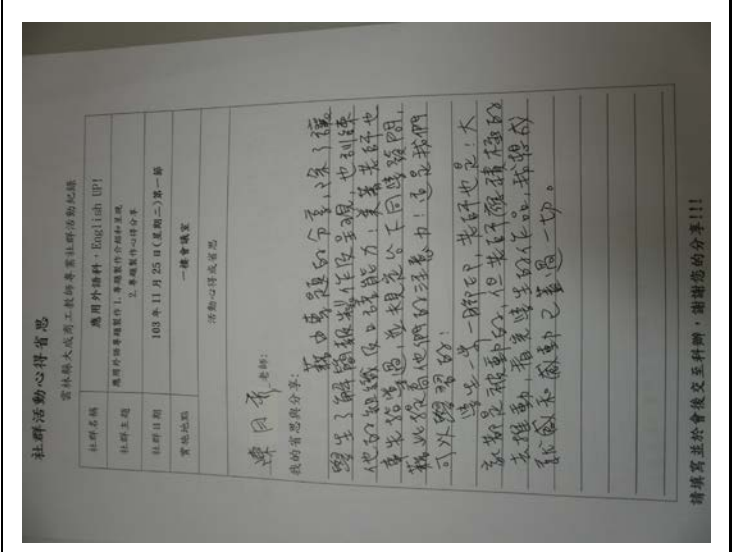 社群活動心得省思
雲林縣大成商工教師專業社群活動紀錄
社群名稱 應用外語科，English UP!
社群主題 應用外語專題製作1. 專題製作介紹和呈現
2. 專題製作心得分享
社群日期 103年11月25日(星期二)第一節
實施地點 一樓會議室
活動心得或省思
老師:
我的省思與分享:
藉由專題的分享,除了讓
學生了解簡報製作及呈現,也訓練
他的組織及口語能力;美菁老師也
事先給筆過,並規定台下同學發問,
藉此提高他們的注意力!這是我們
可以學習的!
學生一步一腳印,老師也是!大
家都是被動的,但老師確積極的
去推動,看完學生的作品,我得成
就感和感動已蓋過一切。
請填寫並於會後交至科辦，謝謝您的分享!!!